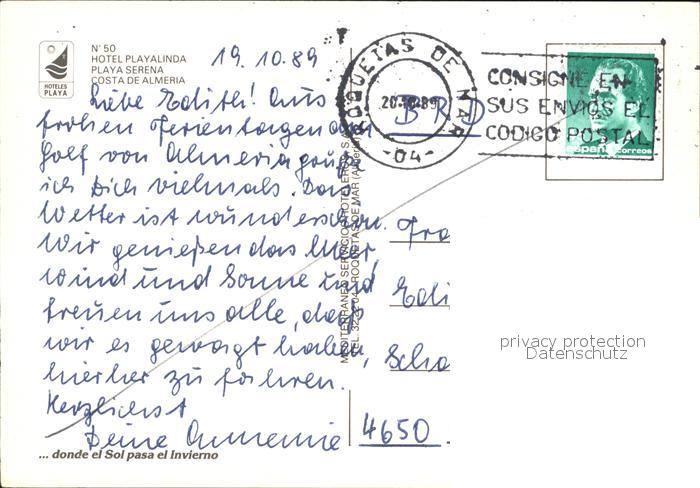 N° 50
HOTEL PLAYALINDA
PLAYA SERENA
COSTA DE ALMERIA
HOTELES
PLAYA
19.10.89
Liebe Edith! Aus
frohen Ferientagen am
Golf von Almeria grüße
ich Dich vielmals. Das
Wetter ist wunderschön.
Wir genießen das Meer,
Wind und Sonne und
freuen uns alle, dass
wir es gewagt haben,
hierher zu fahren.
Herzlichst
Deine Annemie
... donde el Sol pasa el Invierno
MEDITERRANEO SERVICIOS HOTELEROS S.
ROQUETAS DE MAR
20.10.89
-04-
CONSIGNE EN
SUS ENVIOS EL
CODIGO POSTAL
españa correos
BRD
Fra
Edi
Scha
4650
privacy protection
Datenschutz